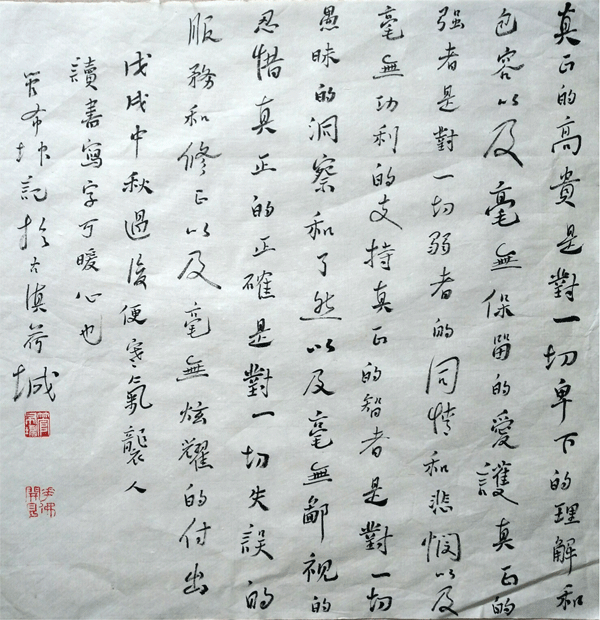 真正的高貴是對一切卑下的理解和
包容以及毫無保留的愛護真正的
强者是對一切弱者的同情和悲憫以及
毫無功利的支持真正的智者是對一切
愚昧的洞察和了然以及毫無鄙視的
忍惜真正的正確是對一切失誤的
服務和修正以及毫無炫耀的付出
戊戌中秋過後便寒氣襲人
讀書寫字可暖心也
管布坤記於古滇荷城